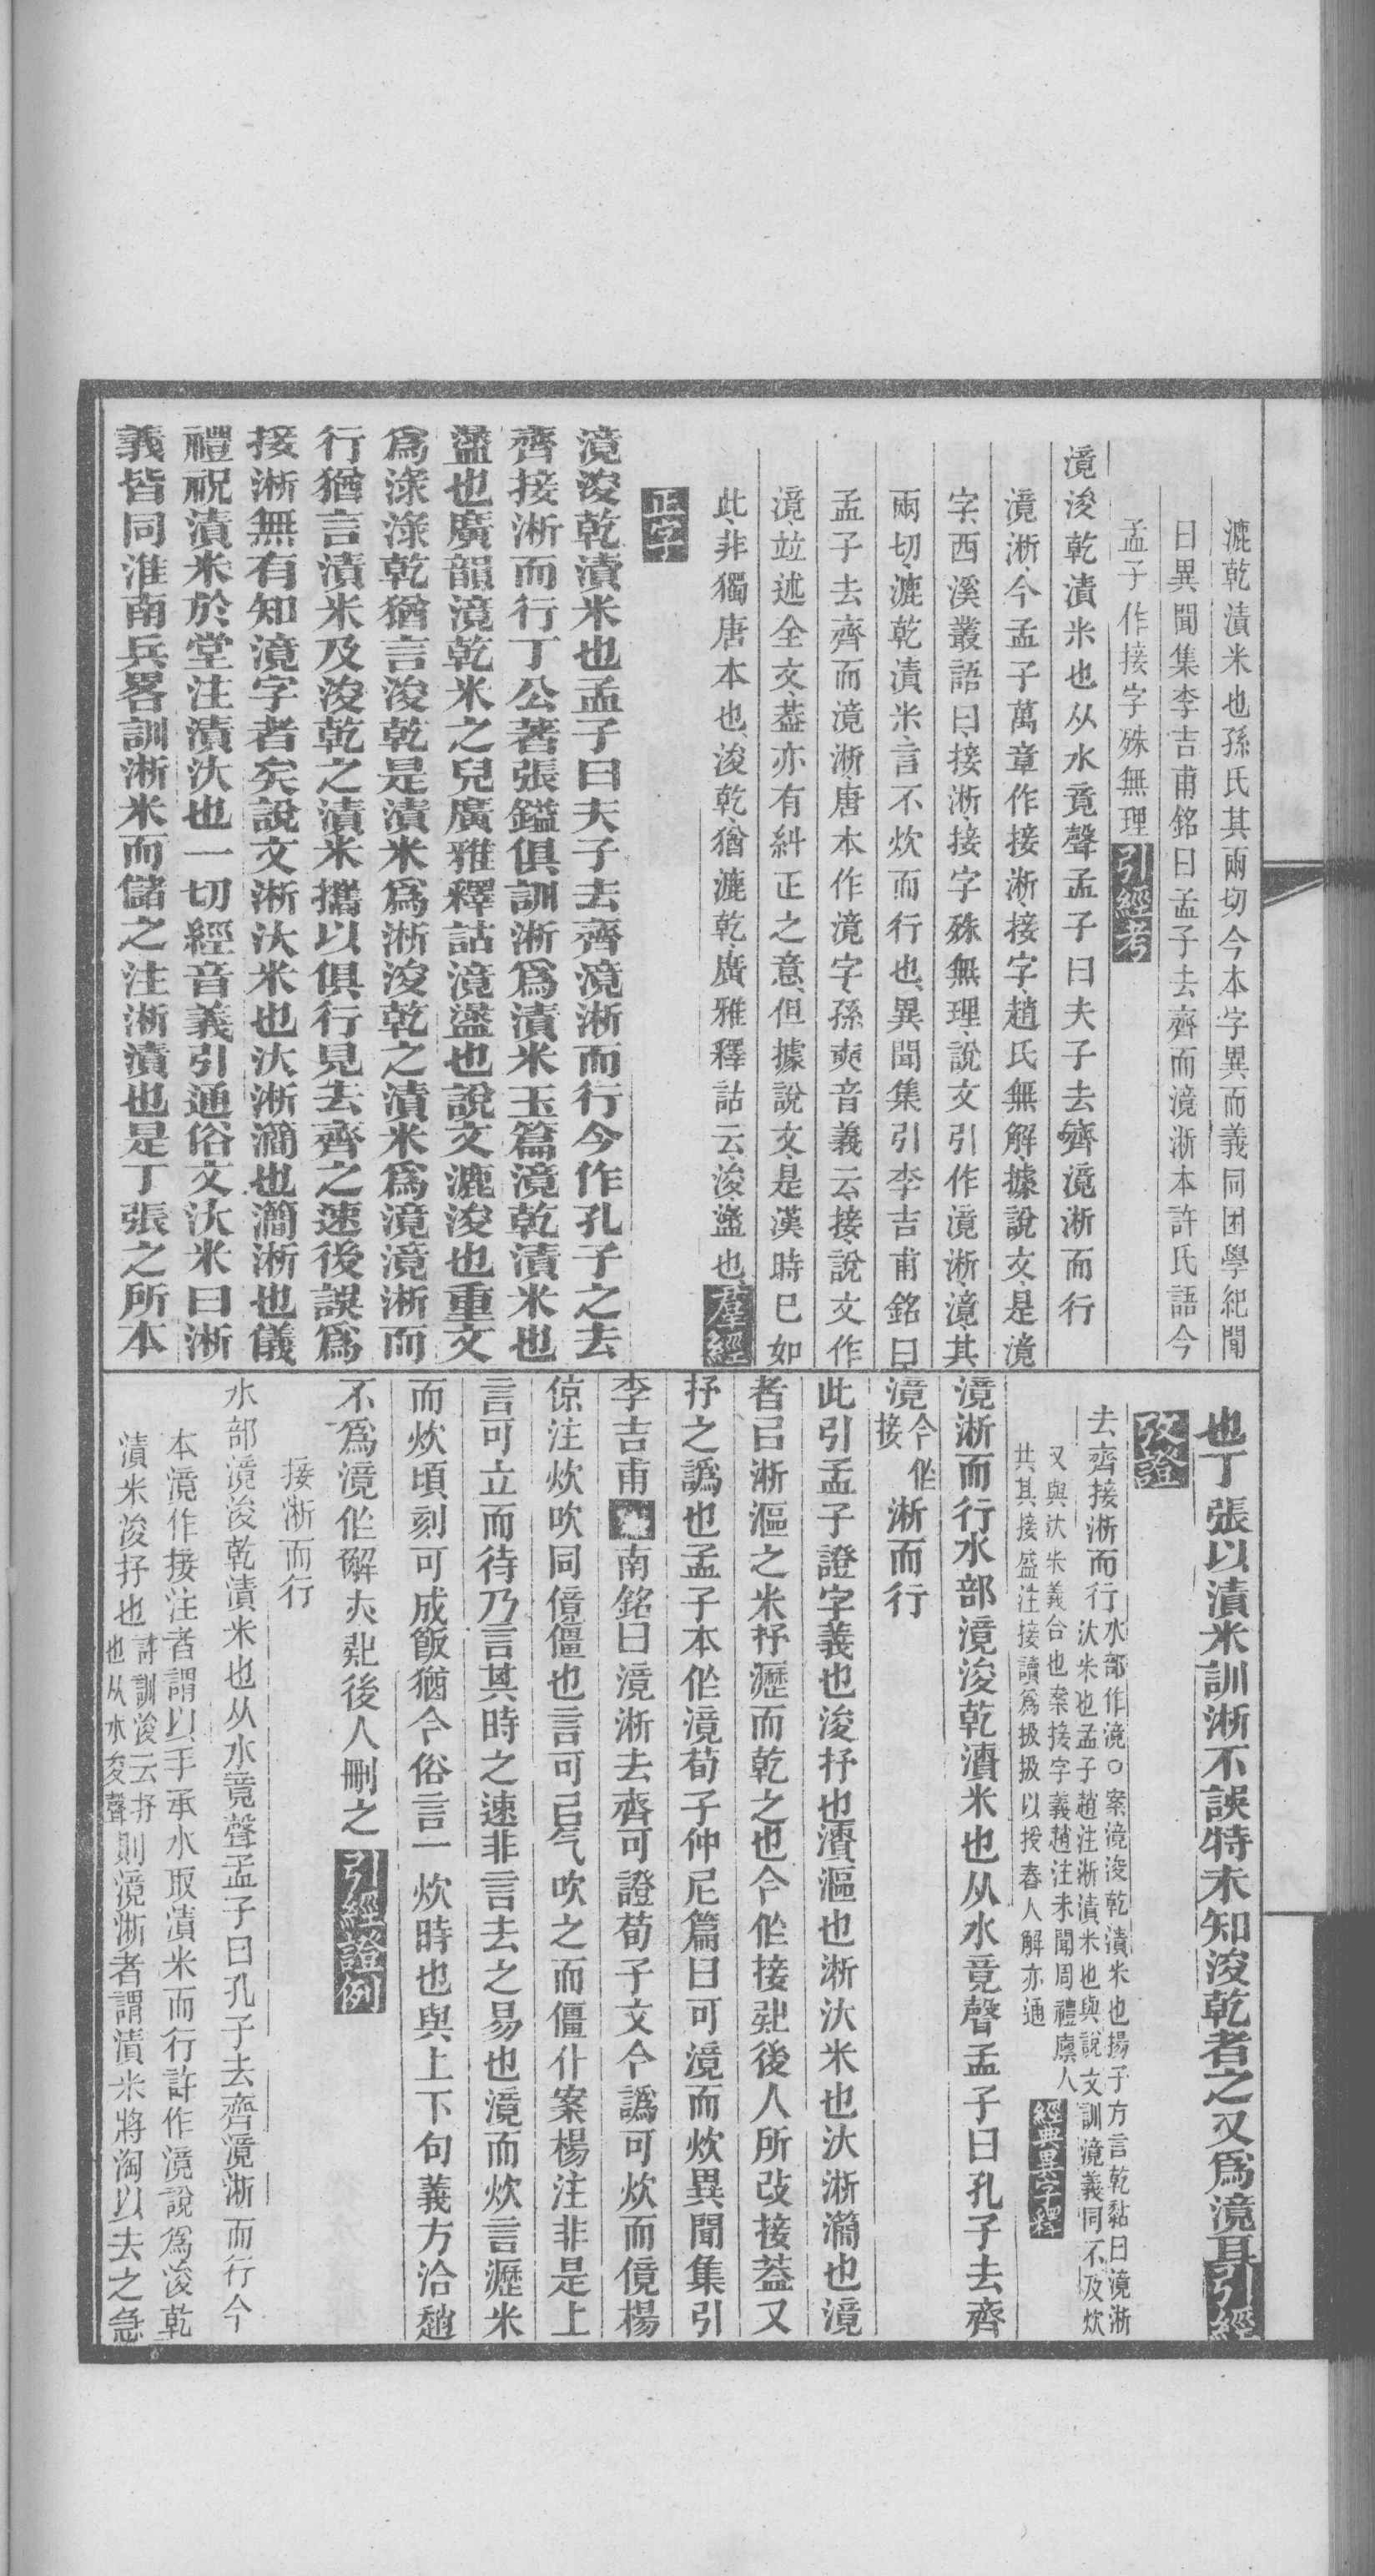 漉乾漬米也孫氏其兩切今本字異而義同困學紀聞
曰異聞集李吉甫銘曰孟子去齊而滰淅本許氏語今
孟子作接字殊無理引經考
滰浚乾漬米也从水竟聲孟子曰夫子去齊滰淅而行
滰淅今孟子萬章作接淅接字趙氏無解據說文是滰
字西溪叢語曰接淅接字殊無理說文引作滰淅滰其
兩切漉乾漬米言不炊而行也異聞集引李吉甫銘曰
孟子去齊而滰淅唐本作滰字孫奭音義云接說文作
滰竝述全文葢亦有糾正之意但據說文是漢時已如
此非獨唐本也浚乾猶漉乾廣雅釋詁云浚盝也羣經
正字
滰浚乾漬米也孟子曰夫子去齊滰淅而行今作孔子之去
齊接淅而行丁公著張鎰俱訓淅爲漬米玉篇滰乾漬米也
盪也廣韻滰乾米之皃廣雅釋詁滰盪也說文漉浚也重文
爲淥淥乾猶言浚乾是漬米爲淅浚乾之漬米爲滰滰淅而
行猶言漬米及浚乾之漬米攜以俱行見去齊之速後誤爲
接淅無有知滰字者矣說文淅汏米也汏淅灡也灡淅也儀
禮祝漬米於堂注漬汏也一切經音義引通俗文汏米曰淅
義皆同淮南兵畧訓淅米而儲之注淅漬也是丁張之所本
也丁張以漬米訓淅不誤特未知浚乾者之又爲滰耳引經
攷證
去齊接淅而行水部作滰○案滰浚乾漬米也揚子方言乾黏曰滰淅
汏米也孟子趙注淅漬米也與說文訓滰義同不及炊
又與汏米義合也案接字義趙注未聞周禮廩人
共其接盛注接讀爲扱扱以授舂人解亦通經典異字釋
滰淅而行水部滰浚乾漬米也从水竟聲孟子曰孔子去齊
滰今作接淅而行
此引孟子證字義也浚抒也漬漚也淅汏米也汏淅灡也滰
者㠯淅漚之米抒瀝而乾之也今作接㢤後人所改接葢又
抒之譌也孟子本作滰荀子仲尼篇曰可滰而炊異聞集引
李吉甫南銘曰滰淅去齊可證荀子文今譌可炊而傹楊
倞注炊吹同傹僵也言可㠯气吹之而僵仆案楊注非是上
言可立而待乃言其時之速非言去之易也滰而炊言瀝米
而炊頃刻可成飯猶今俗言一炊時也與上下句義方洽趙
不爲滰作解㚏㢤後人刪之引經證例
接淅而行
水部滰浚乾漬米也从水竟聲孟子曰孔子去齊滰淅而行今
本滰作接注者謂以手承水取漬米而行許作滰說爲浚乾
漬米浚抒也許訓浚云抒也从水夋聲則滰淅者謂漬米將淘以去之急